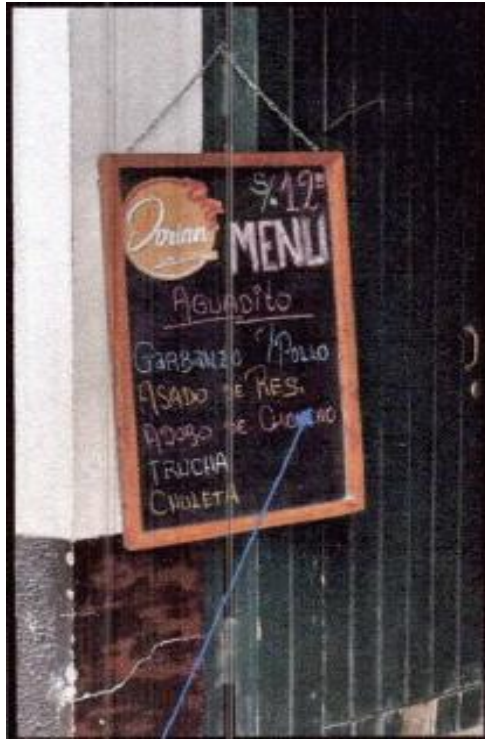 Dorian
S/. 12⁰⁰
MENÚ
AGUADITO
GARBANZO C/POLLO
ASADO DE RES.
ADOBO DE
TRUCHA
CHULETA